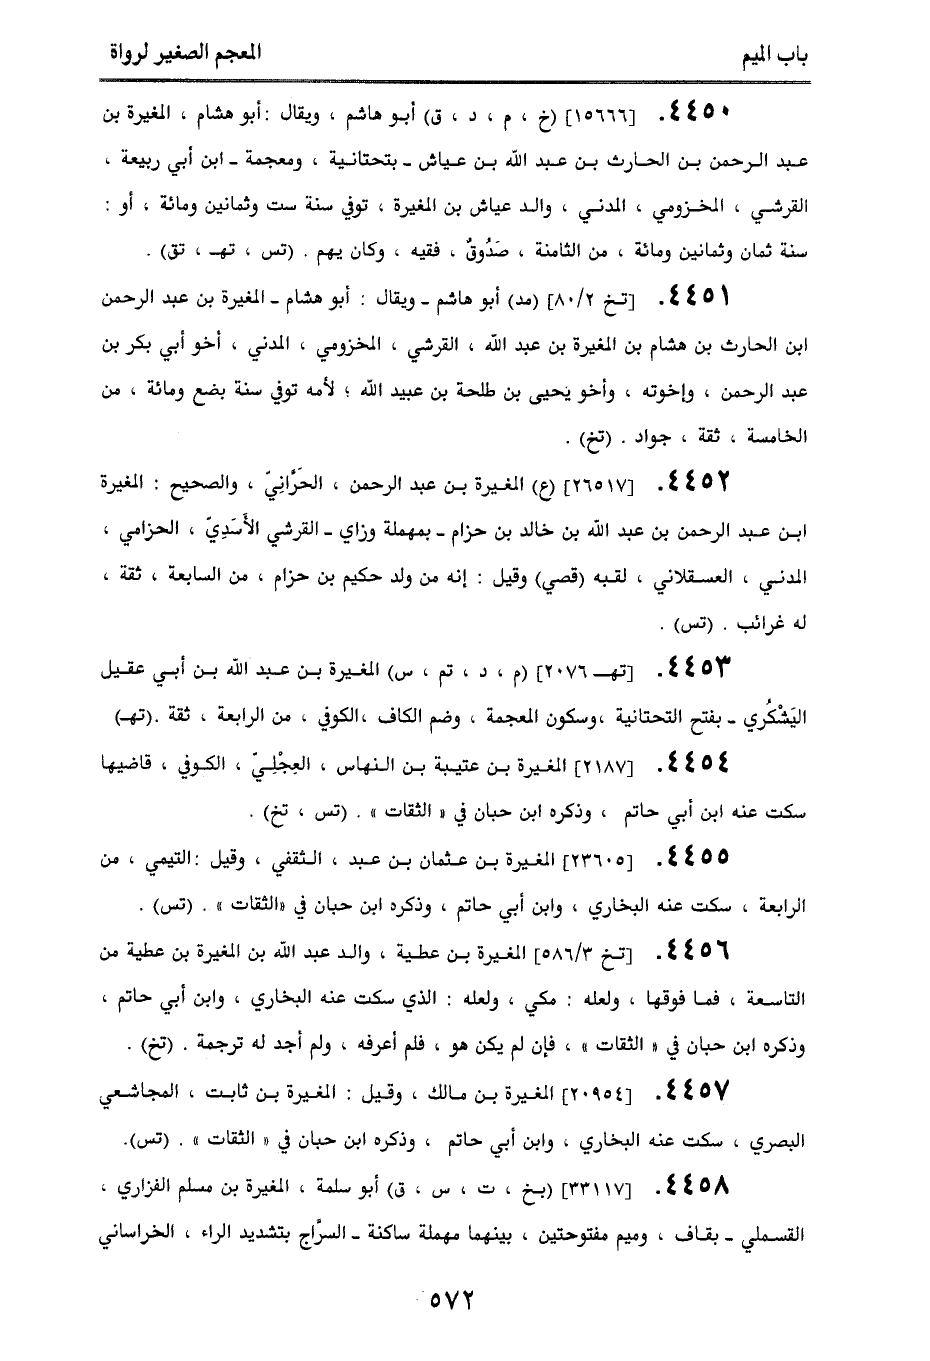 باب الميم
المعجم الصغير لرواة
٤٤٥٠. [١٥٦٦٦] (خ ، م ، د ، ق) أبو هاشم ، ويقال :أبو هشام ، المغيرة بن
عبد الرحمن بن الحارث بن عبد الله بن عياش ـ بتحتانية ، ومعجمة ـ ابن أبي ربيعة ،
القرشي ، المخزومي ، المدني ، والد عياش بن المغيرة ، توفي سنة ست وثمانين ومائة ، أو :
سنة ثمان وثمانين ومائة ، من الثامنة ، صَدُوقٌ ، فقيه ، وكان يهم . (تس ، تهـ ، تق) .
٤٤٥١. [تخ ٨٠/٢] (مد) أبو هاشم ـ ويقال : أبو هشام ـ المغيرة بن عبد الرحمن
ابن الحارث بن هشام بن المغيرة بن عبد الله ، القرشي ، المخزومي ، المدني ، أخو أبي بكر بن
عبد الرحمن ، وإخوته ، وأخو يحيى بن طلحة بن عبيد الله ؛ لأمه توفي سنة بضع ومائة ، من
الخامسة ، ثقة ، جواد . (تخ) .
٤٤٥٢. [٢٦٥١٧] (ع) المغيرة بن عبد الرحمن ، الحَرَّانِيّ ، والصحيح : المغيرة
ابن عبد الرحمن بن عبد الله بن خالد بن حزام ـ بمهملة وزاي ـ القرشي الأَسَدِيّ ، الحزامي ،
المدني ، العسقلاني ، لقبه (قصي) وقيل : إنه من ولد حكيم بن حزام ، من السابعة ، ثقة ،
له غرائب . (تس) .
٤٤٥٣. [تهـ ٢٠٧٦] (م ، د ، تم ، س) المغيرة بن عبد الله بن أبي عقيل
اليَشْكُري ـ بفتح التحتانية ،وسكون المعجمة ، وضم الكاف ،الكوفي ، من الرابعة ، ثقة .(تهـ)
٤٤٥٤. [٢١٨٧] المغيرة بن عتيبة بن النهاس ، العِجْلِيّ ، الكوفي ، قاضيها
سكت عنه ابن أبي حاتم ، وذكره ابن حبان في « الثقات » . (تس ، تخ) .
٤٤٥٥. [٢٣٦٠٥] المغيرة بن عثمان بن عبد ، الثقفي ، وقيل :التيمي ، من
الرابعة ، سكت عنه البخاري ، وابن أبي حاتم ، وذكره ابن حبان في «الثقات » . (تس) .
٤٤٥٦. [تخ ٥٨٦/٣] المغيرة بن عطية ، والد عبد الله بن المغيرة بن عطية من
التاسعة ، فما فوقها ، ولعله : مكي ، ولعله : الذي سكت عنه البخاري ، وابن أبي حاتم ،
وذكره ابن حبان في « الثقات » ، فإن لم يكن هو ، فلم أعرفه ، ولم أجد له ترجمة . (تخ) .
٤٤٥٧. [٢٠٩٥٤] المغيرة بن مالك ، وقيل : المغيرة بن ثابت ، المجاشعي
البصري ، سكت عنه البخاري ، وابن أبي حاتم ، وذكره ابن حبان في « الثقات » . (تس).
٤٤٥٨. [٣٣١١٧] (بخ ، ت ، س ، ق) أبو سلمة ، المغيرة بن مسلم الفزاري ،
القسملي ـ بقاف ، وميم مفتوحتين ، بينهما مهملة ساكنة ـ السرَّاج بتشديد الراء ، الخراساني
٥٧٢